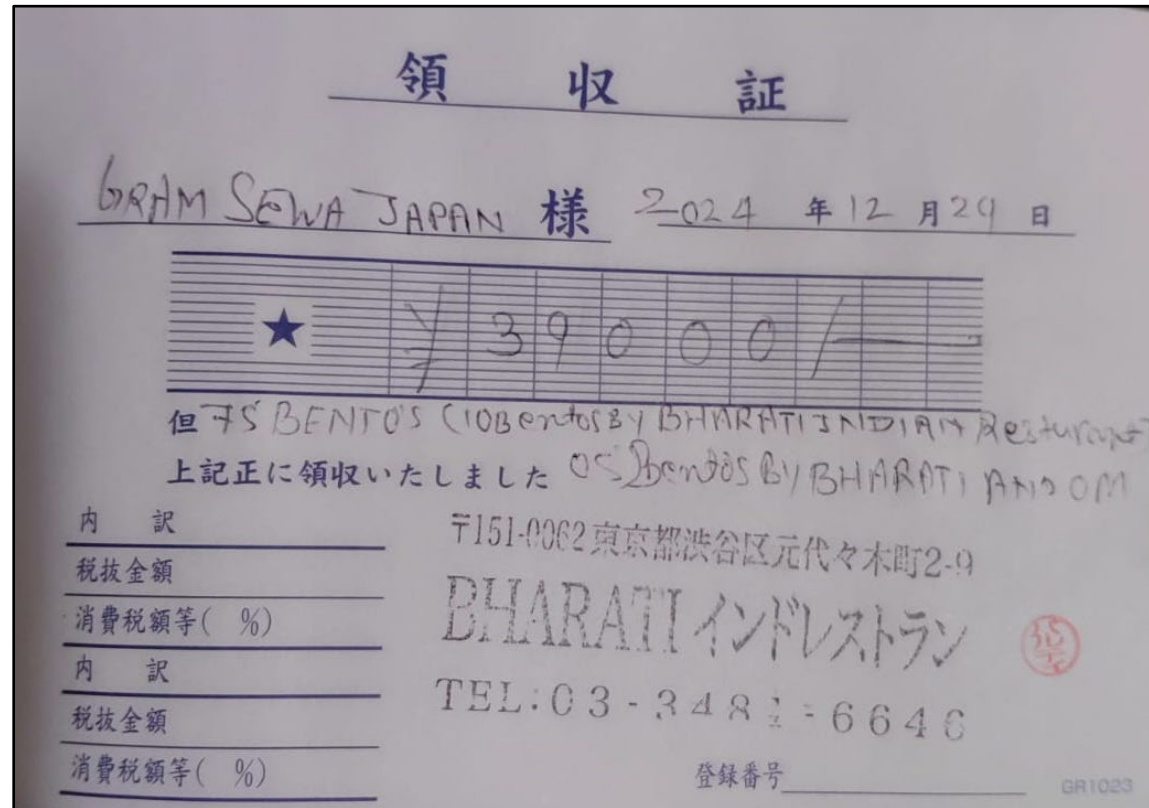 領収証
GRAM SEWA JAPAN 様 2024 年 12 月 29 日
★ ¥ 39000/-
但 75 BENTO'S (10Bentos BY BHARATI INDIAN Resturant
上記正に領収いたしました 05 Bentos BY BHARATI AND OM
内 訳
税抜金額
消費税額等( %)
内 訳
税抜金額
消費税額等( %)
〒151-0062 東京都渋谷区元代々木町2-9
BHARATI インドレストラン
TEL:03-348 -6646
登録番号
GR1023